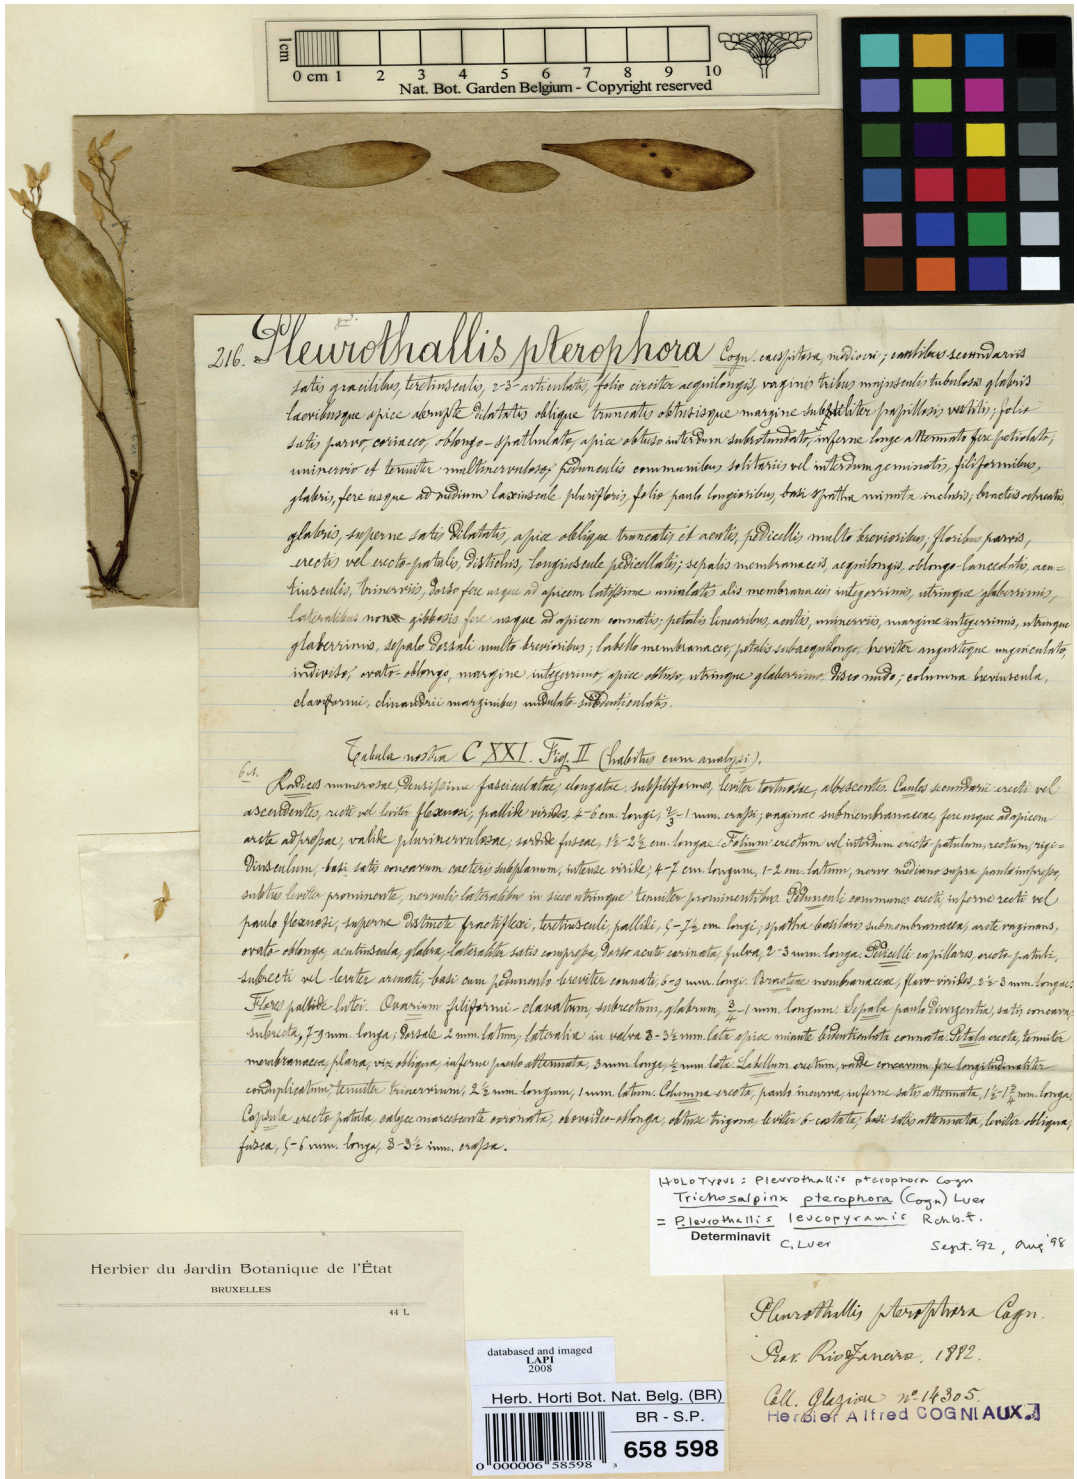 1cm
0 cm 1 2 3 4 5 6 7 8 9 10
Nat. Bot. Garden Belgium - Copyright reserved
216. Pleurothallis pterophora Cogn. caespitosa, mediocri; caulibus secundariis
satis gracilibus, teretiusculis, 2-3-articulatis, folio circiter aequilongis, vaginis tribus majusculis tubulosis glabris
laevibusque apice abrupte dilatatis oblique truncatis obtusisque margine subtiliter papillosis vestitis; folio
satis parvo, coriaceo, oblongo-spathulato, apice obtuso interdum subrotundato, inferne longe attenuato fere petiolato,
uninervio et tenuiter multinervuloso; pedunculis communibus solitariis vel interdum geminatis, filiformibus,
glabris, fere usque ad medium laxiuscule plurifloris, folio paulo longioribus, basi spatha minuta inclusis; bracteis ochreatis,
glabris, superne satis dilatatis, apice oblique truncatis et acutis, pedicellis multo brevioribus; floribus parvis,
erectis vel erecto-patulis, distichis, longiuscule pedicellatis; sepalis membranaceis, aequilongis, oblongo-lanceolatis, acu=
tiusculis, trinerviis, dorso fere usque ad apicem latissime unialatis alis membranaceis integerrimis, utrinque glaberrimis,
lateralibus non gibbosis fere usque ad apicem connatis; petalis linearibus, acutis, uninerviis, margine integerrimis, utrinque
glaberrimis, sepalo dorsali multo brevioribus; labello membranaceo, petalis subaequilongo, breviter angusteque unguiculato,
indiviso, ovato-oblongo, margine integerrimo, apice obtuso, utrinque glaberrimo, disco nudo; columna breviuscula,
claviformi, clinandrii marginibus undulato-subdenticulatis.
Tabula nostra CXXI. Fig. II (habitus cum analysi).
Radices numerosae, densissime fasciculatae, elongatae, subfiliformes, leviter tortuosae, albescentes. Caules secundarii erecti vel
ascendentes, recti vel leviter flexuosi, pallide virides, 4-6 cm. longi, 2/3-1 mm. crassi; vaginae submembranaceae, fere usque ad apicem
arcte adpressae, valide plurinervulosae, sordide fuscae, 1½-2½ cm. longae. Folium erectum vel interdum erecto-patulum, rectum, rigi=
diusculum, basi satis concavum caeteris subplanum, intense viride, 4-7 cm. longum, 1-2 cm. latum, nervo mediano supra paulo impresso,
subtus leviter prominente, nervulis lateralibus in sicco utrinque tenuiter prominentibus. Pedunculi communes erecti, inferne recti vel
paulo flexuosi, superne distincte fractiflexi, teretiusculi, pallidi, 5-7½ cm. longi; spatha basilaris submembranacea, arcte vaginans,
ovato-oblonga, acutiuscula, glabra, lateraliter satis compressa, dorso acute carinata, fulva, 2-3 mm. longa. Pedicelli capillares, erecto-patuli,
subrecti vel leviter arcuati, basi cum pedunculo breviter connati, 6-9 mm. longi. Bracteae membranaceae, flavo-virides, 2½-3 mm. longae.
Flores pallide lutei. Ovarium filiformi-clavatum, subrectum, glabrum, 3/4-1 mm. longum. Sepala paulo divergentia, satis concava,
subrecta, 7-9 mm. longa; dorsale 2 mm. latum; lateralia in valva 3-3½ mm. lata apice minute bidenticulata connata. Petala erecta, tenuiter
membranacea, plana, vix obliqua, inferne paulo attenuata, 3 mm. longa, ½ mm. lata. Labellum erectum, valde concavum fere longitudinaliter
conduplicatum, tenuiter trinervium, 2½ mm. longum, 1 mm. latum. Columna erecta, paulo incurva, inferne satis attenuata, 1½-1¾ mm. longa.
Capsula erecto-patula, calyce marcescente coronata, obovideo-oblonga, obtuse trigona, leviter 6-costata, basi satis attenuata, leviter obliqua,
fusca, 5-6 mm. longa, 3-3½ mm. crassa.
HOLOTYPUS: Pleurothallis pterophora Cogn
Trichosalpinx pterophora (Cogn) Luer
= Pleurothallis leucopyramis Rchb.f.
Determinavit C. Luer Sept. '92, Aug '98
Herbier du Jardin Botanique de l'État
BRUXELLES
44 L
Pleurothallis pterophora Cogn.
Prov. Rio Janeiro, 1882.
Coll. Glaziou nº 14305
Herbier Alfred COGNIAUX.
databased and imaged
LAPI
2008
Herb. Horti Bot. Nat. Belg. (BR)
BR - S.P.
658 598
0 000006 58598